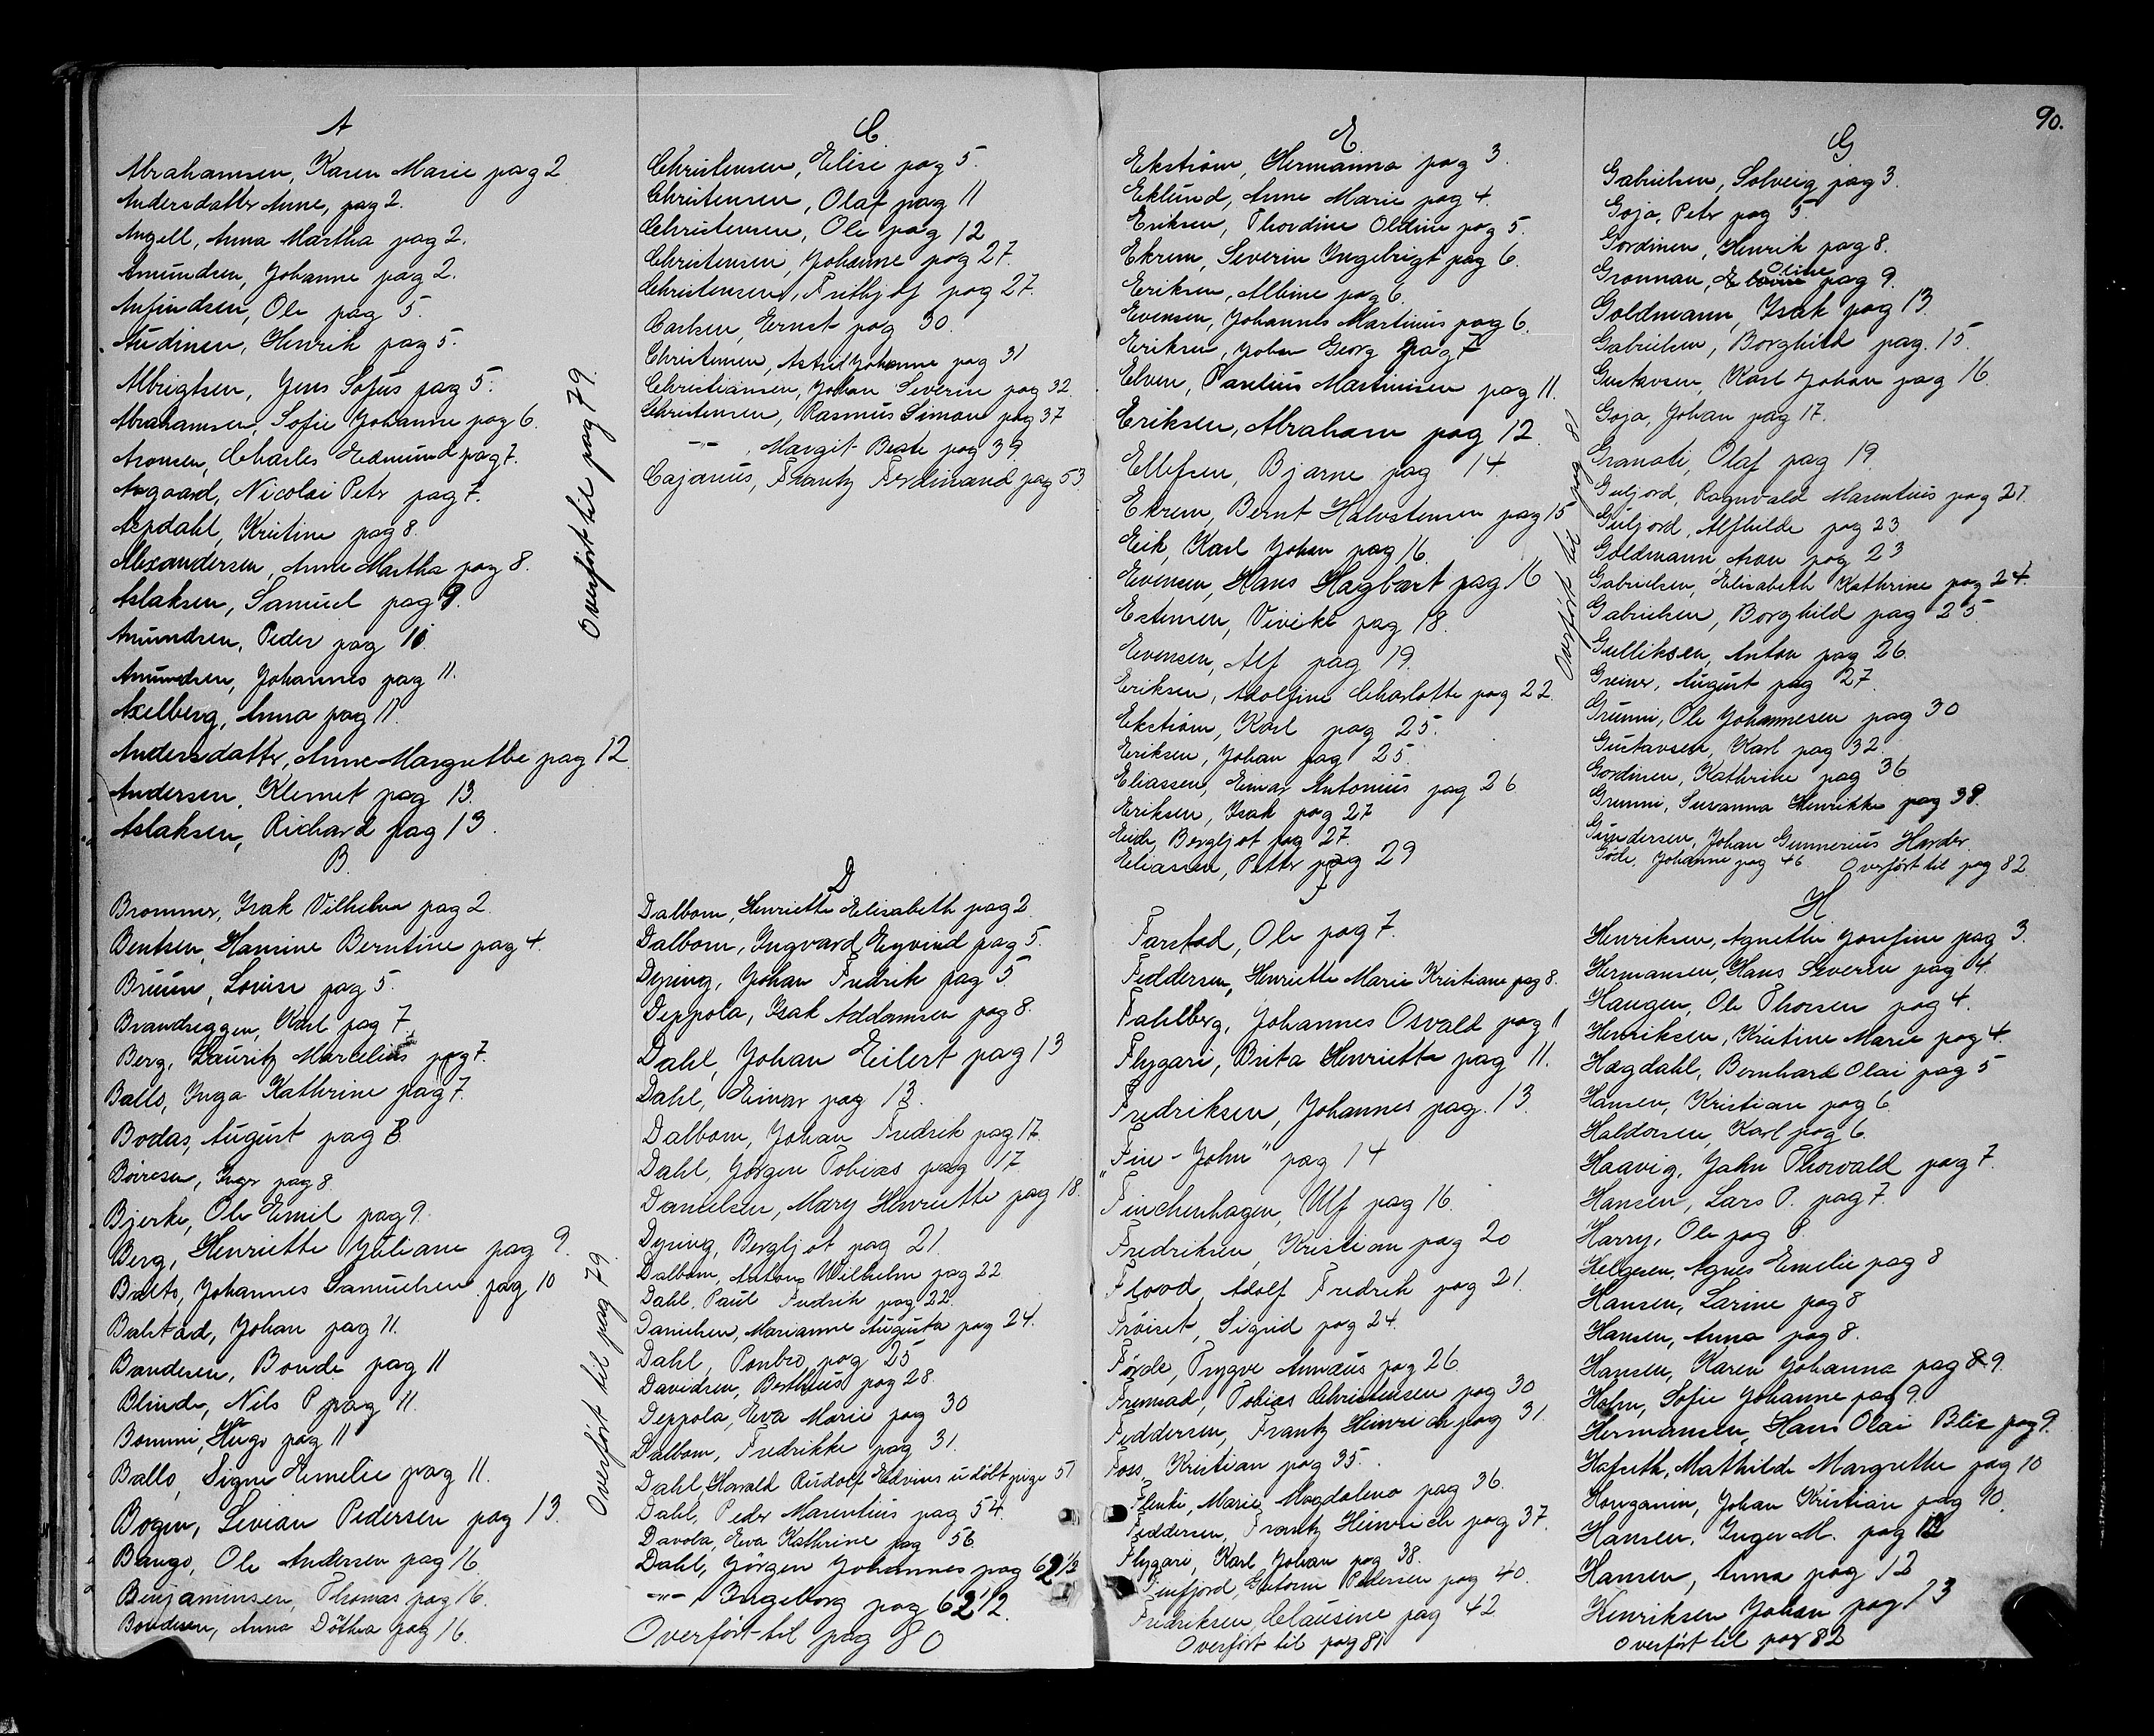 90.
A
Abrahamsen, Karen Marie pag 2
Andersdatter Anne, pag 2.
Angell, Anna Martha pag 2.
Amundsen, Johanne pag 2.
Anfindsen, Ole pag 5.
Audinen, Henrik pag 5.
Albrigtsen, Jens Sofus pag 5.
Abrahamsen, Sofie Johanne pag 6.
Aronsen, Charles Edmund pag 7.
Aagaard, Nicolai Petr pag 7.
Aspdahl, Kristine pag 8.
Alexandersen, Anne Martha pag 8.
Aslaksen, Samuel pag 9.
Amundsen, Peder pag 10.
Amundsen, Johannes pag 11.
Axelberg, Anna pag 11.
Andersdatter, Anne Margrethe pag 12
Andersen, Klemet pag 13.
Aslaksen, Richard pag 13.
Overført til pag 79.
B.
Brommer, Isak Vilhelm pag 2
Bentsen, Hansine Berntine pag 4.
Bruun, Louise pag 5.
Brandseggen, Karl pag 7.
Berg, Lauritz Marcelius pag 7.
Ballo, Inga Kathrine pag 7.
Bodas, August pag 8.
Børresen, Inger pag 8
Bjerke, Ole Emil pag 9.
Berg, Henriette Juliane pag 9.
Balto, Johannes Samuelsen pag 10
Balstad, Johan pag 11.
Bandersen, Bonde pag 11
Blinde, Nils P pag 11.
Bommi, Hugo pag 11
Ballo, Signe Emelie pag 11.
Bogen, Levian Pedersen pag 13.
Bango, Ole Andersen pag 16
Benjaminsen, Thomas pag 16.
Bondesen, Anna Døthea pag 16.
Overført til pag 79
C.
Christensen, Elise pag 5.
Christensen, Olaf pag 11
Christensen, Ole pag 12
Christensen, Johanne pag 27.
Christensen, Frithjof pag 27.
Carlsen, Ernst pag 30.
Christensen, Astrid Johanne pag 31
Christiansen, Johan Severin pag 32.
Christensen, Rasmus Simon pag 37
-"- , Margit Beate pag 39.
Cajanus, Frantz Ferdinand pag 53
D
Dalbom, Henriette Elisabeth pag 2
Dalbom, Ingvard Eyvind pag 5.
Dyring, Johan Fredrik pag 5.
Deppola, Isak Addamsen pag 8.
Dahl, Johan Eilert pag 13
Dahl, Einar pag 13.
Dalbom, Johan Fredrik pag 17.
Dahl, Jørgen Tobias pag 17.
Danielsen, Mary Henriette pag 18.
Dyring, Bergljot pag 21.
Dalbom, Anton Wilhelm pag 22
Dahl, Paul Fredrik pag 22.
Danielsen, Marianne Augusta pag 24.
Dahl, Ponbro pag 25
Davidsen, Bertheus pag 28.
Deppola, Eva Marie pag 30
Dalbom, Fredrikke pag 31.
Dahl, Harald Rudolf Edvins udøbt pige 51
Dahl, Peder Marentius pag 54.
Davola, Eva Kathrine pag 56.
Dahl, Jørgen Johannes pag 62 1/2
-"- Ingeborg pag 62 1/2.
Overført til pag 80
E
Ekstrøm, Hermanna pag 3.
Eklund, Anne Marie pag 4.
Eriksen, Thordine Oldine pag 5.
Ekrem, Severin Ingebrigt pag 6.
Eriksen, Albine pag 6.
Evensen, Johannes Martinus pag 6.
Eriksen, Johan Georg pag 7
Elven, Paulius Martinisen pag 11.
Eriksen, Abraham pag 12.
Ellefsen, Bjarne pag 14.
Ekrem, Bernt Halvstensen pag 15
Eik, Karl Johan pag 16.
Evensen, Hans Hagbart pag 16
Estensen, Viviki pag 18.
Evensen, Alf pag 19.
Eriksen, Adolfine Charlotte pag 22.
Ekstrøm, Karl pag 25.
Eriksen, Johan pag 25.
Eliassen, Einar Antonius pag 26
Eriksen, Isak pag 27
Eide, Bergljot pag 27.
Eliassen, Petter pag 29
Overført til pag 81
F
Farstad, Ole pag 7.
Feddersen, Henriette Marie Kristiane pag 8.
Fahlberg, Johannes Osvald pag 11
Flygari, Brita Henriette pag 11.
Fredriksen, Johannes pag. 13.
"Fin-John" pag 14
Finchenhagen, Ulf pag 16.
Fredriksen, Kristian pag 20
Flood, Adolf Fredrik pag 21.
Frøiset, Sigrid pag 24.
Førde, Trygve Annæus pag 26.
Fremsad, Tobias Christensen pag 30
Feddersen, Frantz Heinrich pag 31.
Foss, Kristian pag 35.
Flenki, Marie Magdalena pag 36.
Feddersen, Frantz Heinrich pag 37.
Flygari, Karl Johan pag 38.
Finfjord, Guttorm Pedersen pag 40.
Fredriksen, Clausine pag 42
Overført til pag 81
G
Gabrielsen, Solveig pag 3.
Goja, Petr pag 5.
Gordinen, Henrik pag 8.
Gronnan, Oline pag 9.
Goldmann, Isak pag 13.
Gabrielsen, Borghild pag. 15.
Gustavsen, Karl Johan pag 16
Goja, Johan pag 17.
Granati, Olaf pag 19.
Guljord, Ragnvald Marentius pag 21.
Guljord, Alfhilde pag 23
Goldmann, Aron pag 23
Gabrielsen, Elisabeth Kathrine pag 24.
Gabrielsen, Borghild pag 25.
Gulliksen, Anton pag 26.
Greiner, August pag 27.
Grunni, Ole Johannesen pag 30
Gustavsen, Karl pag 32.
Gordinen, Kathrine pag 36
Grunni, Susanna Henrikke pag 38.
Gundersen, Johan Gunnerius Harder.
Göde, Johanne pag 46. Overført til pag 82
H
Henriksen, Agnethe Josefine pag 3.
Hermansen, Hans Severin pag 4.
Haugen, Ole Thorsen pag 4.
Henriksen, Kristine Marie pag 4.
Hægdahl, Bernhard Olai pag 5
Hansen, Kristian pag 6
Haldorsen, Karl pag 6.
Haavig, Jahn Thorvald pag 7.
Hansen, Lars P. pag 7.
Harry, Ole pag 8.
Helgesen, Agnes Emelie pag 8
Hansen, Larine pag 8
Hansen, Anna pag 8.
Hansen, Karen Johanna pag 8 9.
Holm, Sofie Johanne pag 9.
Hermansen, Hans Olai Blix pag 9.
Hafseth, Mathilde Margrethe pag 10
Honganin, Johan Kristian pag 10.
Hansen, Inger M. pag 12
Hansen, Anna pag 12
Henriksen Johan pag 13
Overført til pag 82